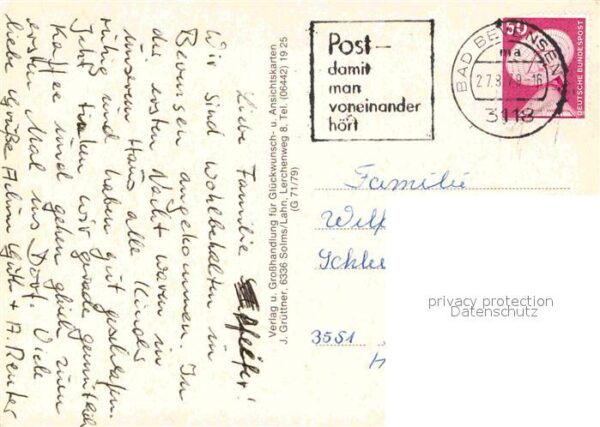 Liebe Familie Pfeifer!
Wir sind wohlbehalten in
Bevensen angekommen. In
der ersten Nacht waren in
unserem Haus alle Kinder
ruhig und haben gut geschlafen.
Jetzt trinken wir gerade gemütlich
Kaffee und gehen gleich zum
ersten Mal ins Dorf. Viele
liebe Grüße
Verlag u. Großhandlung für Glückwunsch- u. Ansichtskarten
J. Grüttner, 6336 Solms/Lahn, Lerchenweg 8, Tel. (06442) 19 25
(G 71/79)
Post-
damit
man
voneinander
hört
BAD BEVENSEN
ma
27.8.79-16
3118
50
DEUTSCHE BUNDESPOST
Familie
3551
privacy protection
Datenschutz